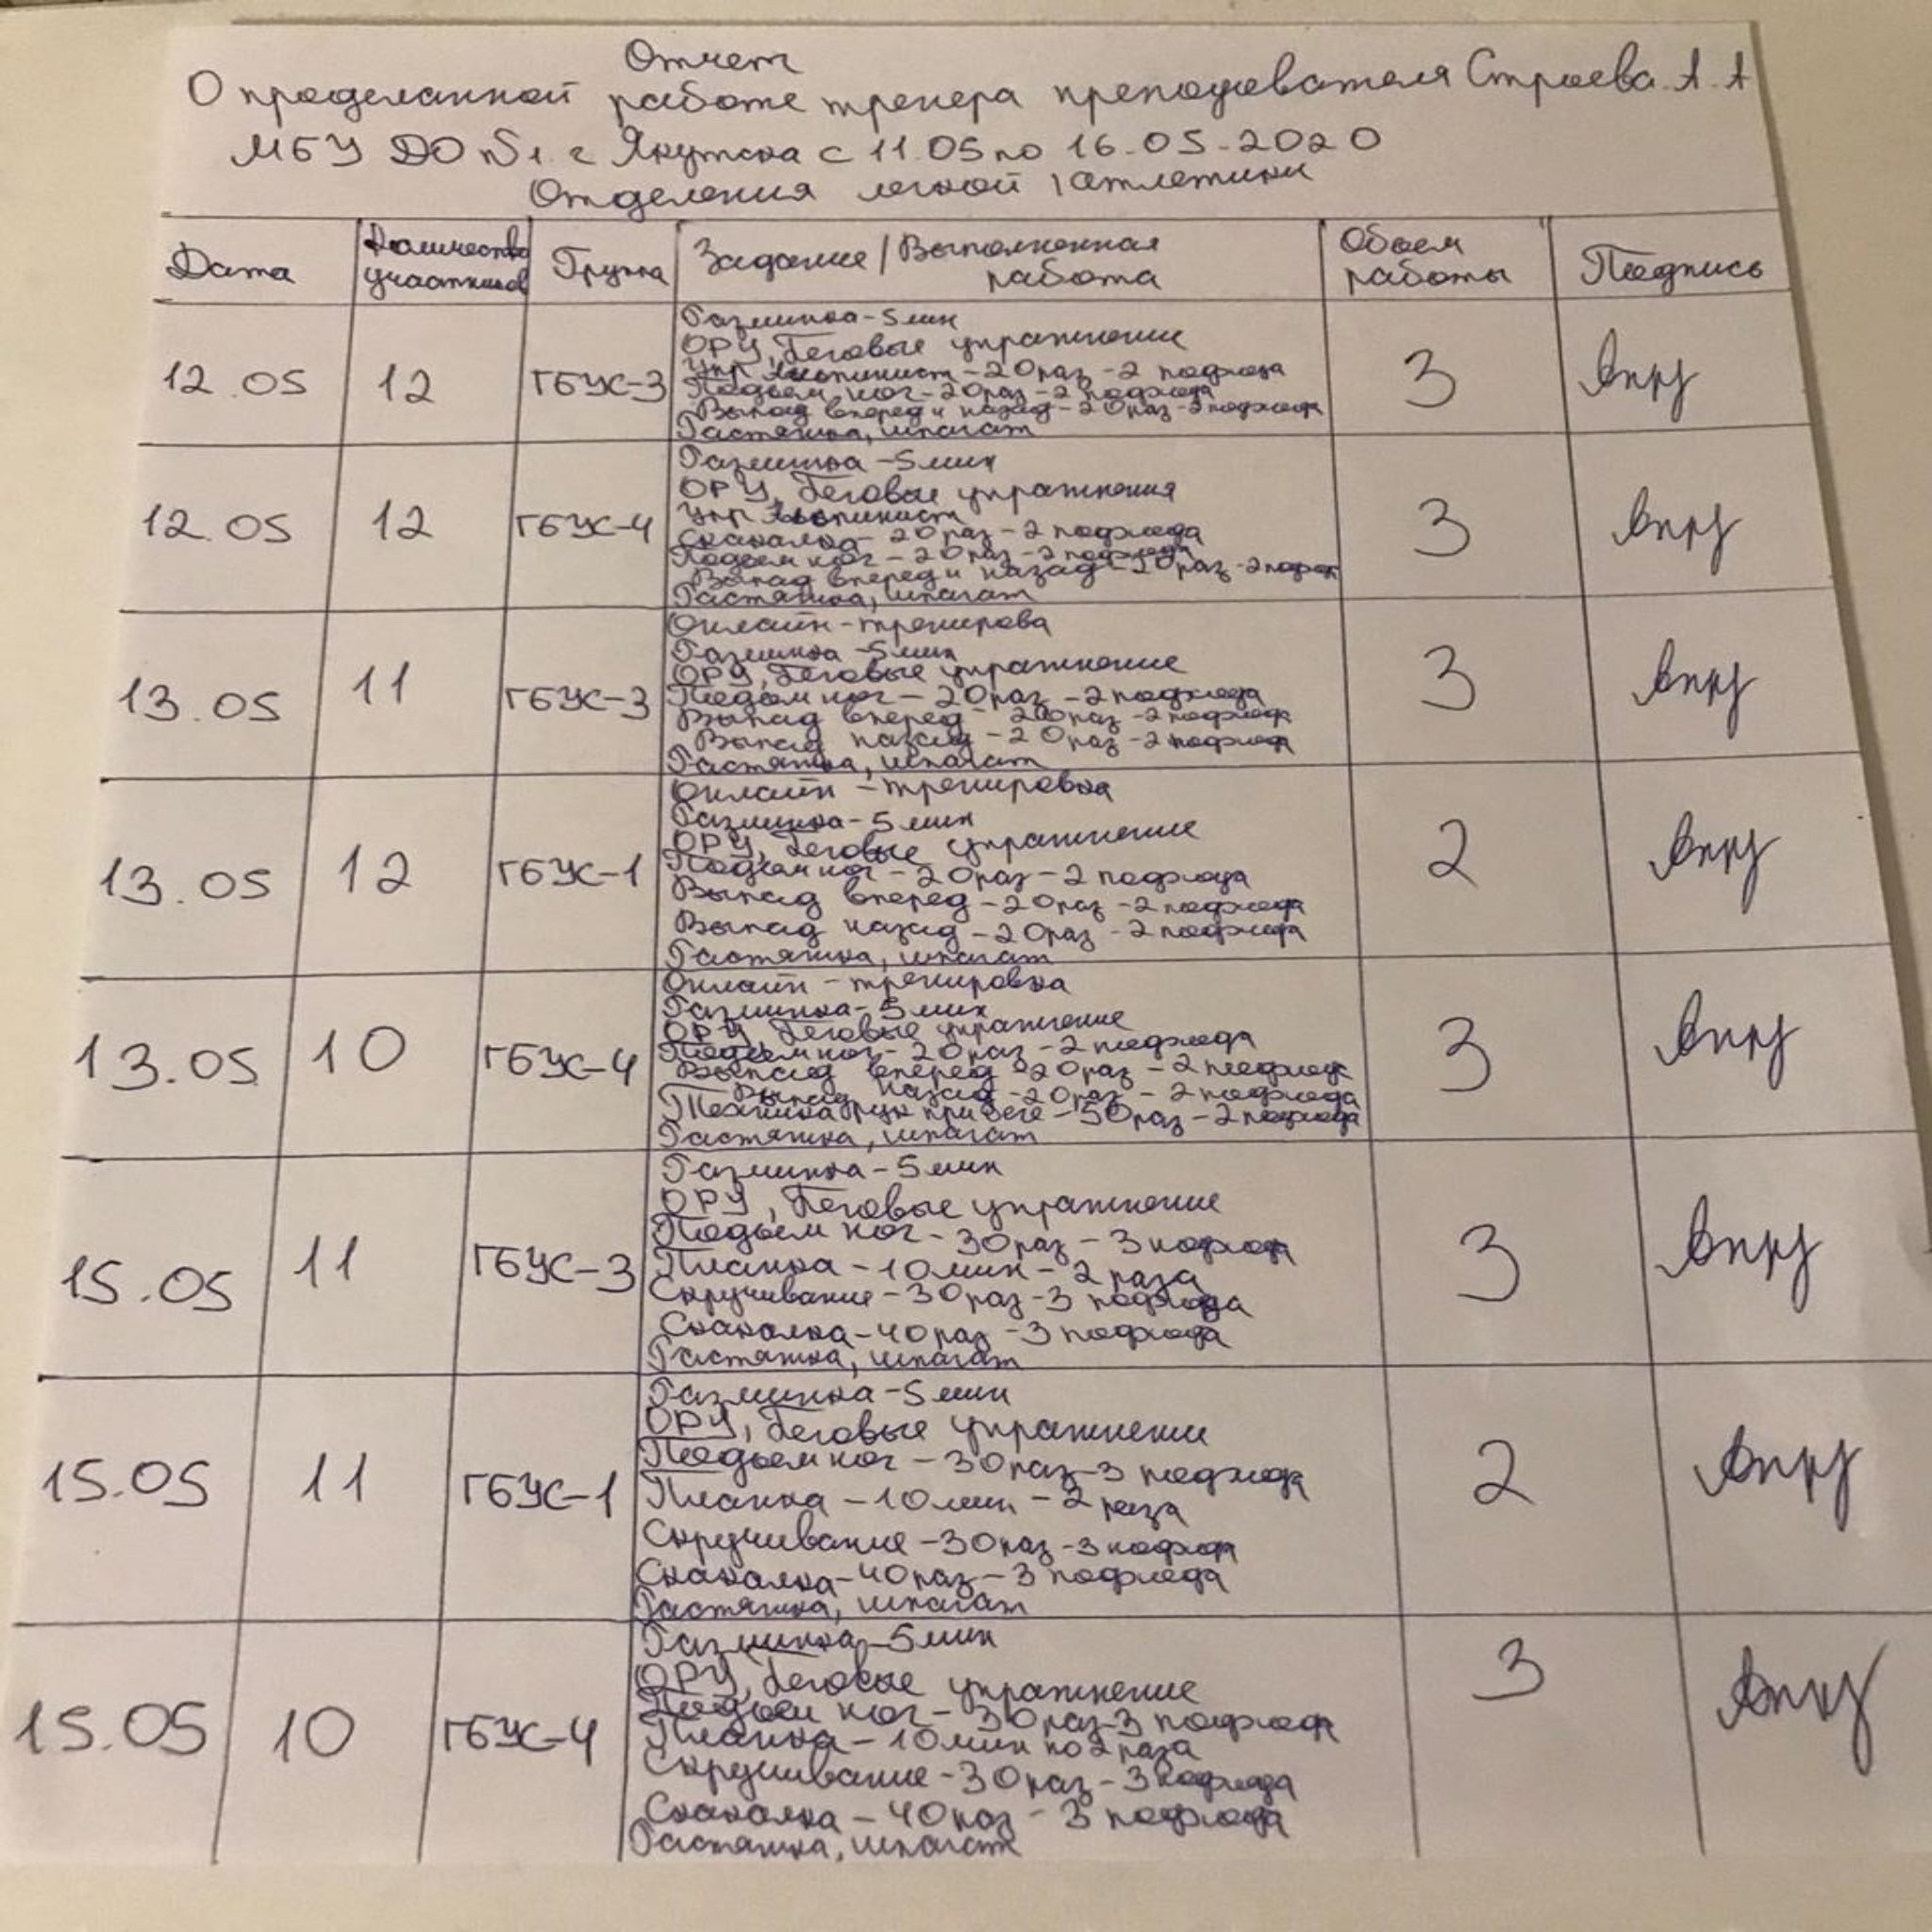 Отчет
О проделанной работе тренера преподавателя Строева А. А
МБУ ДО г Якутска с 11.05 по 16.05.2020
Отделения легкой атлетики
Дата
Количество участников
Группа
Задание / Выполненная работа
Обьем работы
Подпись
12.05
12
ГБУС-3
Разминка-5 мин
ОРУ, Беговые упражнение
Упр - 20 раз - 2 подхода
Подьем ног - 20 раз - 2 подхода
Выпад вперед и назад - 20 раз - 2 подхода
Растяжка, шпагат
3
12.05
12
ГБУС-4
Разминка - 5 мин
ОРУ, Беговые упражнения
Упр
Скакалка - 20 раз - 2 подхода
Подьем ног - 20 раз - 2 подхода
Выпад вперед и назад - 20 раз - 2 подход
Растяжка, шпагат
3
13.05
11
ГБУС-3
Онлайн-тренирова
Разминка - 5 мин
ОРУ, Беговые упражнение
Подьем ног - 20 раз - 2 подхода
Выпад вперед - 20 раз - 2 подхода
Выпад назад - 20 раз - 2 подхода
Растяжка, шпагат
3
13.05
12
ГБУС-1
Онлайн - тренировка
Разминка - 5 мин
ОРУ, Беговые упражнение
Подьем ног - 20 раз - 2 подхода
Выпад вперед - 20 раз - 2 подхода
Выпад назад - 20 раз - 2 подхода
Растяжка, шпагат
2
13.05
10
ГБУС-4
Онлайн - тренировка
Разминка - 5 мин
ОРУ, Беговые упражнение
Подьем ног - 20 раз - 2 подхода
Выпад вперед - 20 раз - 2 подхода
Выпад назад - 20 раз - 2 подхода
Техника рук при беге - 50 раз - 2 подхода
Растяжка, шпагат
3
15.05
11
ГБУС-3
Разминка - 5 мин
ОРУ, Беговые упражнение
Подьем ног - 30 раз - 3 подхода
Планка - 10 мин - 2 раза
Скручивание - 30 раз - 3 подхода
Скакалка - 40 раз - 3 подхода
Растяжка, шпагат
3
15.05
11
ГБУС-1
Разминка - 5 мин
ОРУ, Беговые упражнение
Подьем ног - 30 раз - 3 подхода
Планка - 10 мин - 2 раза
Скручивание - 30 раз - 3 подхода
Скакалка - 40 раз - 3 подхода
Растяжка, шпагат
2
15.05
10
ГБУС-4
Разминка - 5 мин
ОРУ, Беговые упражнение
Подьем ног - 30 раз - 3 подхода
Планка - 10 мин по 2 раза
Скручивание - 30 раз - 3 подхода
Скакалка - 40 раз - 3 подхода
Растяжка, шпагат
3